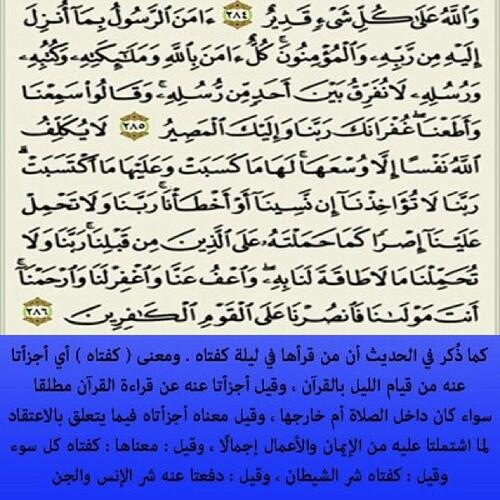 وَاللَّهُ عَلَىٰ كُلِّ شَيْءٍ قَدِيرٌ ٢٨٤ ءَامَنَ الرَّسُولُ بِمَا أُنزِلَ
إِلَيْهِ مِن رَّبِّهِ وَالْمُؤْمِنُونَ ۚ كُلٌّ ءَامَنَ بِاللَّهِ وَمَلَٰئِكَتِهِ وَكُتُبِهِ
وَرُسُلِهِ لَا نُفَرِّقُ بَيْنَ أَحَدٍ مِّن رُّسُلِهِ ۚ وَقَالُوا سَمِعْنَا
وَأَطَعْنَا ۖ غُفْرَانَكَ رَبَّنَا وَإِلَيْكَ الْمَصِيرُ ٢٨٥ لَا يُكَلِّفُ
اللَّهُ نَفْسًا إِلَّا وُسْعَهَا ۚ لَهَا مَا كَسَبَتْ وَعَلَيْهَا مَا اكْتَسَبَتْ ۗ
رَبَّنَا لَا تُؤَاخِذْنَا إِن نَّسِينَا أَوْ أَخْطَأْنَا ۚ رَبَّنَا وَلَا تَحْمِلْ
عَلَيْنَا إِصْرًا كَمَا حَمَلْتَهُ عَلَى الَّذِينَ مِن قَبْلِنَا ۚ رَبَّنَا وَلَا
تُحَمِّلْنَا مَا لَا طَاقَةَ لَنَا بِهِ ۖ وَاعْفُ عَنَّا وَاغْفِرْ لَنَا وَارْحَمْنَا ۚ
أَنتَ مَوْلَانَا فَانصُرْنَا عَلَى الْقَوْمِ الْكَافِرِينَ ٢٨٦
كما ذُكر في الحديث أن من قرأها في ليلة كفتاه . ومعنى ( كفتاه ) أي أجزأتا
عنه من قيام الليل بالقرآن ، وقيل أجزأتا عنه عن قراءة القرآن مطلقا
سواء كان داخل الصلاة أم خارجها ، وقيل معناه أجزأتاه فيما يتعلق بالاعتقاد
لما اشتملتا عليه من الإيمان والأعمال إجمالًا ، وقيل : معناها : كفتاه كل سوء
وقيل : كفتاه شر الشيطان ، وقيل : دفعتا عنه شر الإنس والجن